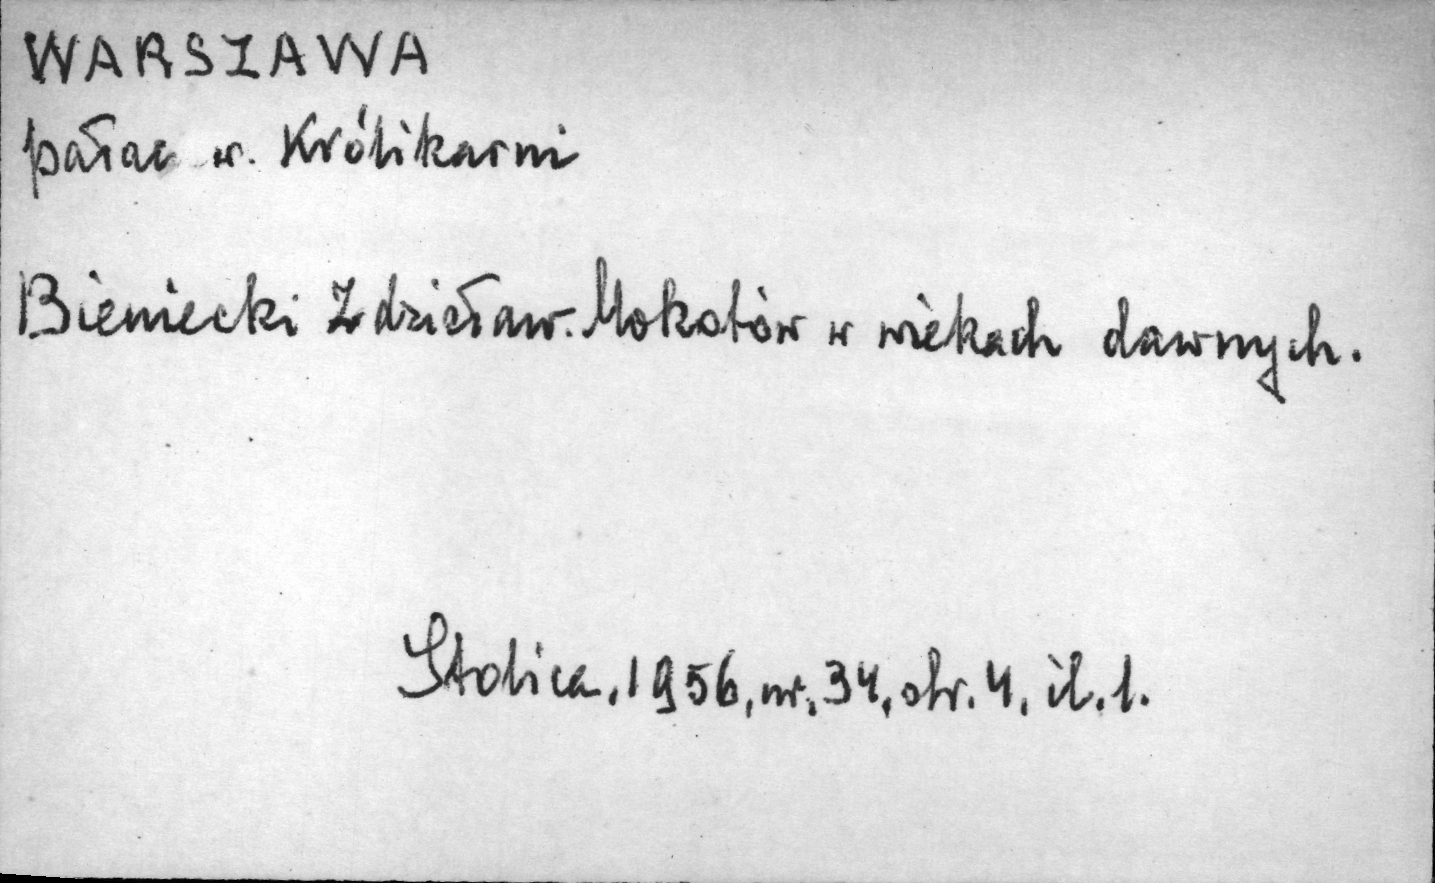 WARSZAWA
pałac w. Królikarni
Bieniecki Zdzisław. Mokotów w wiekach dawnych.
Stolica, 1956, nr. 34, str. 4, il. 1.